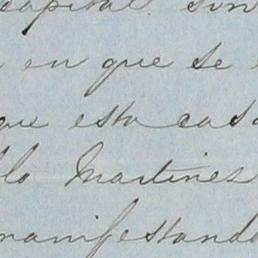 capital sin
en que se
que esta casa
lo Martinez
manifestando